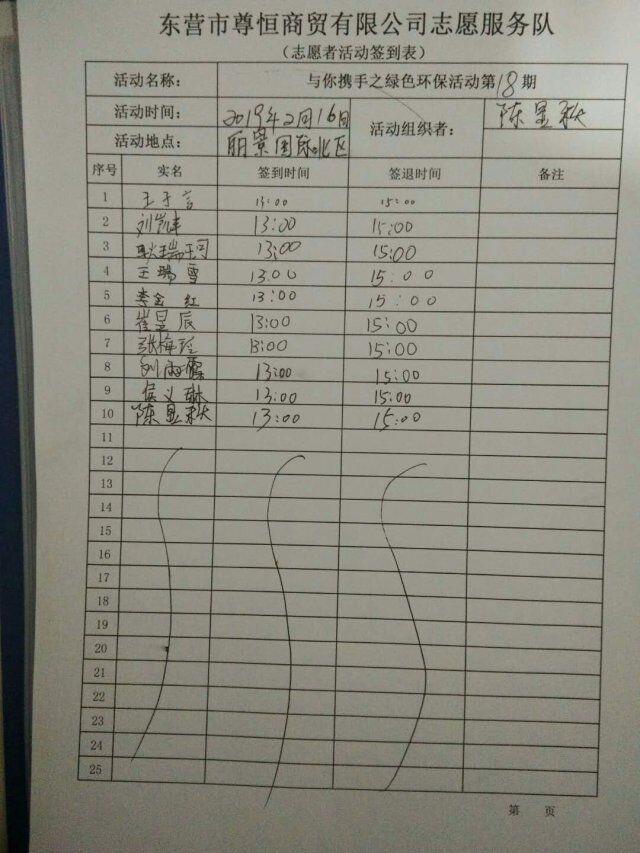 东营市尊恒商贸有限公司志愿服务队
（志愿者活动签到表）
活动名称： 与你携手之绿色环保活动第18期
活动时间： 2019年2月16日 活动组织者： 陈昱秋
活动地点： 丽景国际北区
序号 实名 签到时间 签退时间 备注
1 王子言 13:00 15:00
2 刘凯丰 13:00 15:00
3 耿瑞珂 13:00 15:00
4 王瑞雪 13:00 15:00
5 李金红 13:00 15:00
6 崔昱辰 13:00 15:00
7 张梅玲 13:00 15:00
8 刘雨儒 13:00 15:00
9 侯义琳 13:00 15:00
10 陈昱秋 13:00 15:00
11
12
13
14
15
16
17
18
19
20
21
22
23
24
25
第 页